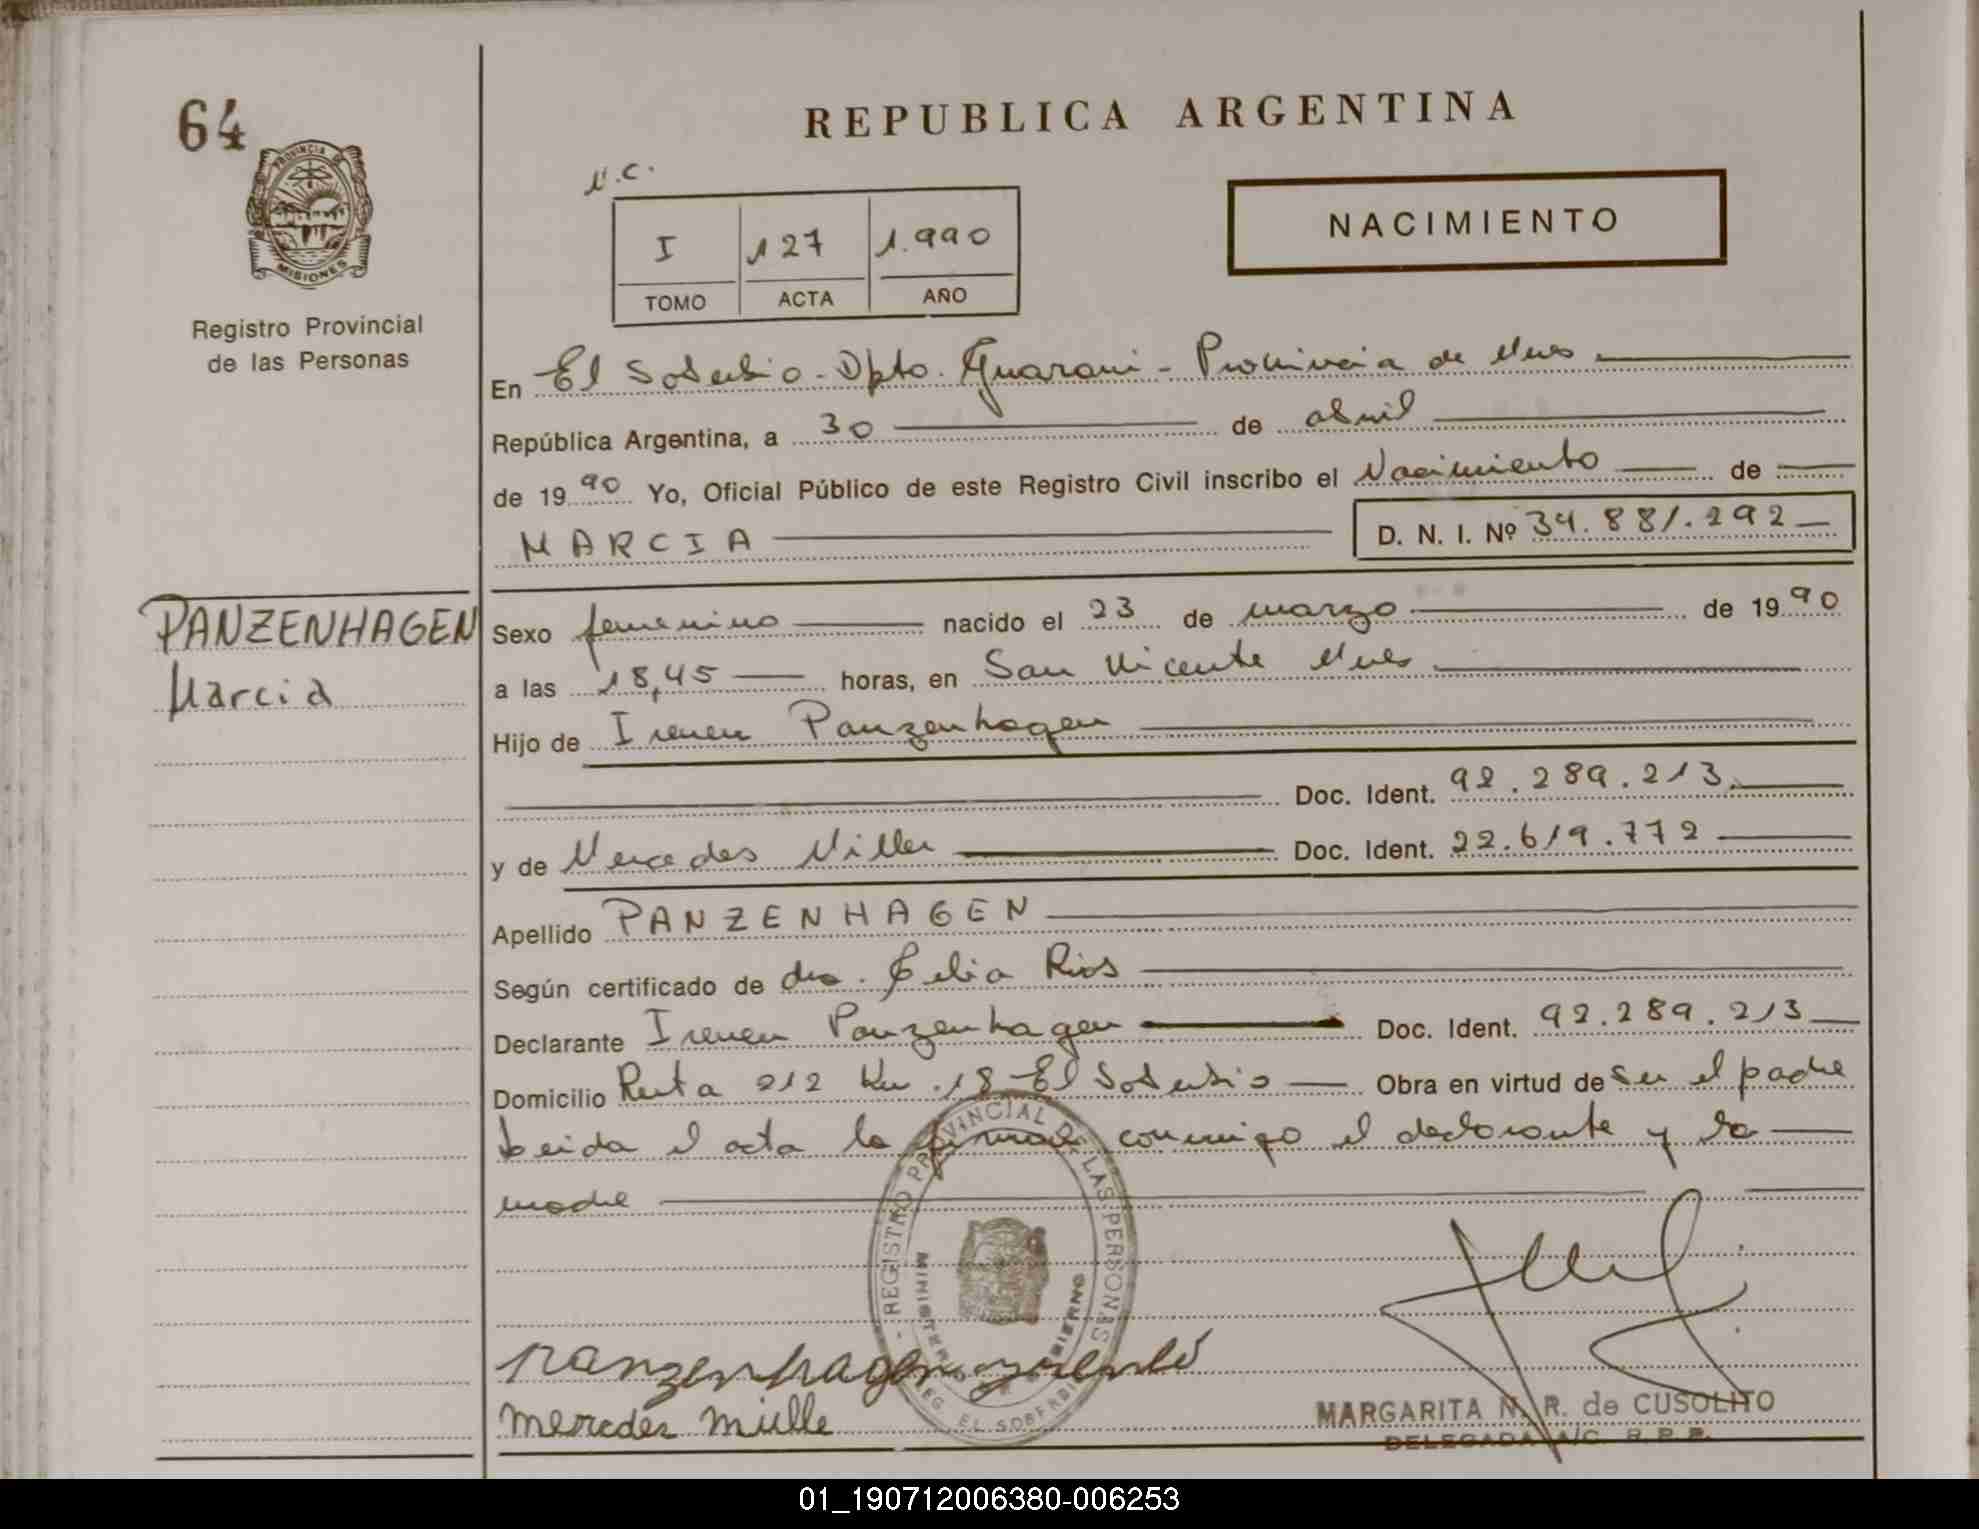 64
PROVINCIA DE
MISIONES
Registro Provincial
de las Personas
REPUBLICA ARGENTINA
N.C.
I 127 1.990
TOMO ACTA AÑO
NACIMIENTO
En El Soberbio - Dpto. Guaraní - Provincia de Mnes
República Argentina, a 30 de abril
de 1990 Yo, Oficial Público de este Registro Civil inscribo el Nacimiento de
MARCIA D. N. I. Nº 34.881.292
PANZENHAGEN
Marcia
Sexo femenino nacido el 23 de marzo de 1990
a las 18,45 horas, en San Vicente Mnes
Hijo de Ireneu Panzenhagen
Doc. Ident. 92.289.213
y de Mercedes Miller Doc. Ident. 22.619.772
Apellido PANZENHAGEN
Según certificado de dra. Celia Rios
Declarante Ireneu Panzenhagen Doc. Ident. 92.289.213
Domicilio Ruta 212 Km. 18 El Soberbio Obra en virtud de ser el padre
Leida el acta la firman conmigo el declarante y la
madre
REGISTRO PROVINCIAL DE LAS PERSONAS
MINISTERIO DE GOBIERNO
REG. EL SOBERBIO
Panzenhagen
mercedes mulle
MARGARITA N. R. de CUSOLITO
DELEGADA A/C. R. P. P.
01_190712006380-006253